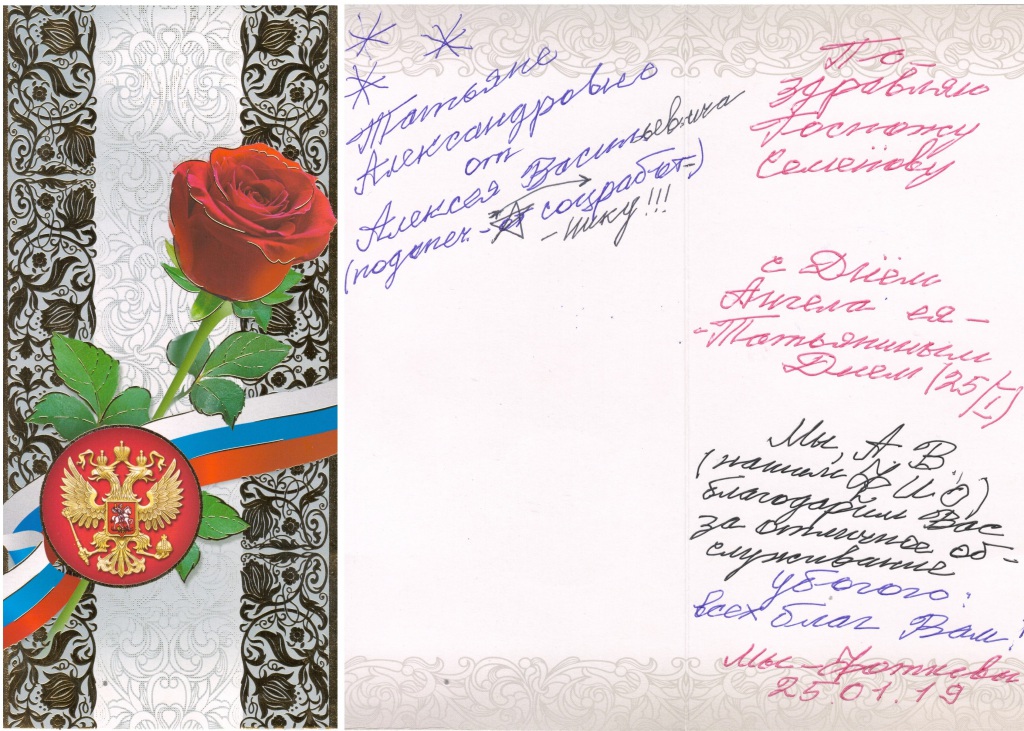 Татьяне
Александровне
от
Алексея Васильевича
(подопеч. - соцработ-)
- нику!!!
По-
здравляю
Госпожу
Семёнову
с Днём
Ангела ея -
"Татьяниным
Днем (25/I)
Мы, А. В.
(нашим Ф И.О)
благодарим Вас
за отличное об-
служивание
убогого:
всех благ Вам!
Мы - Фатневы
25.01.19